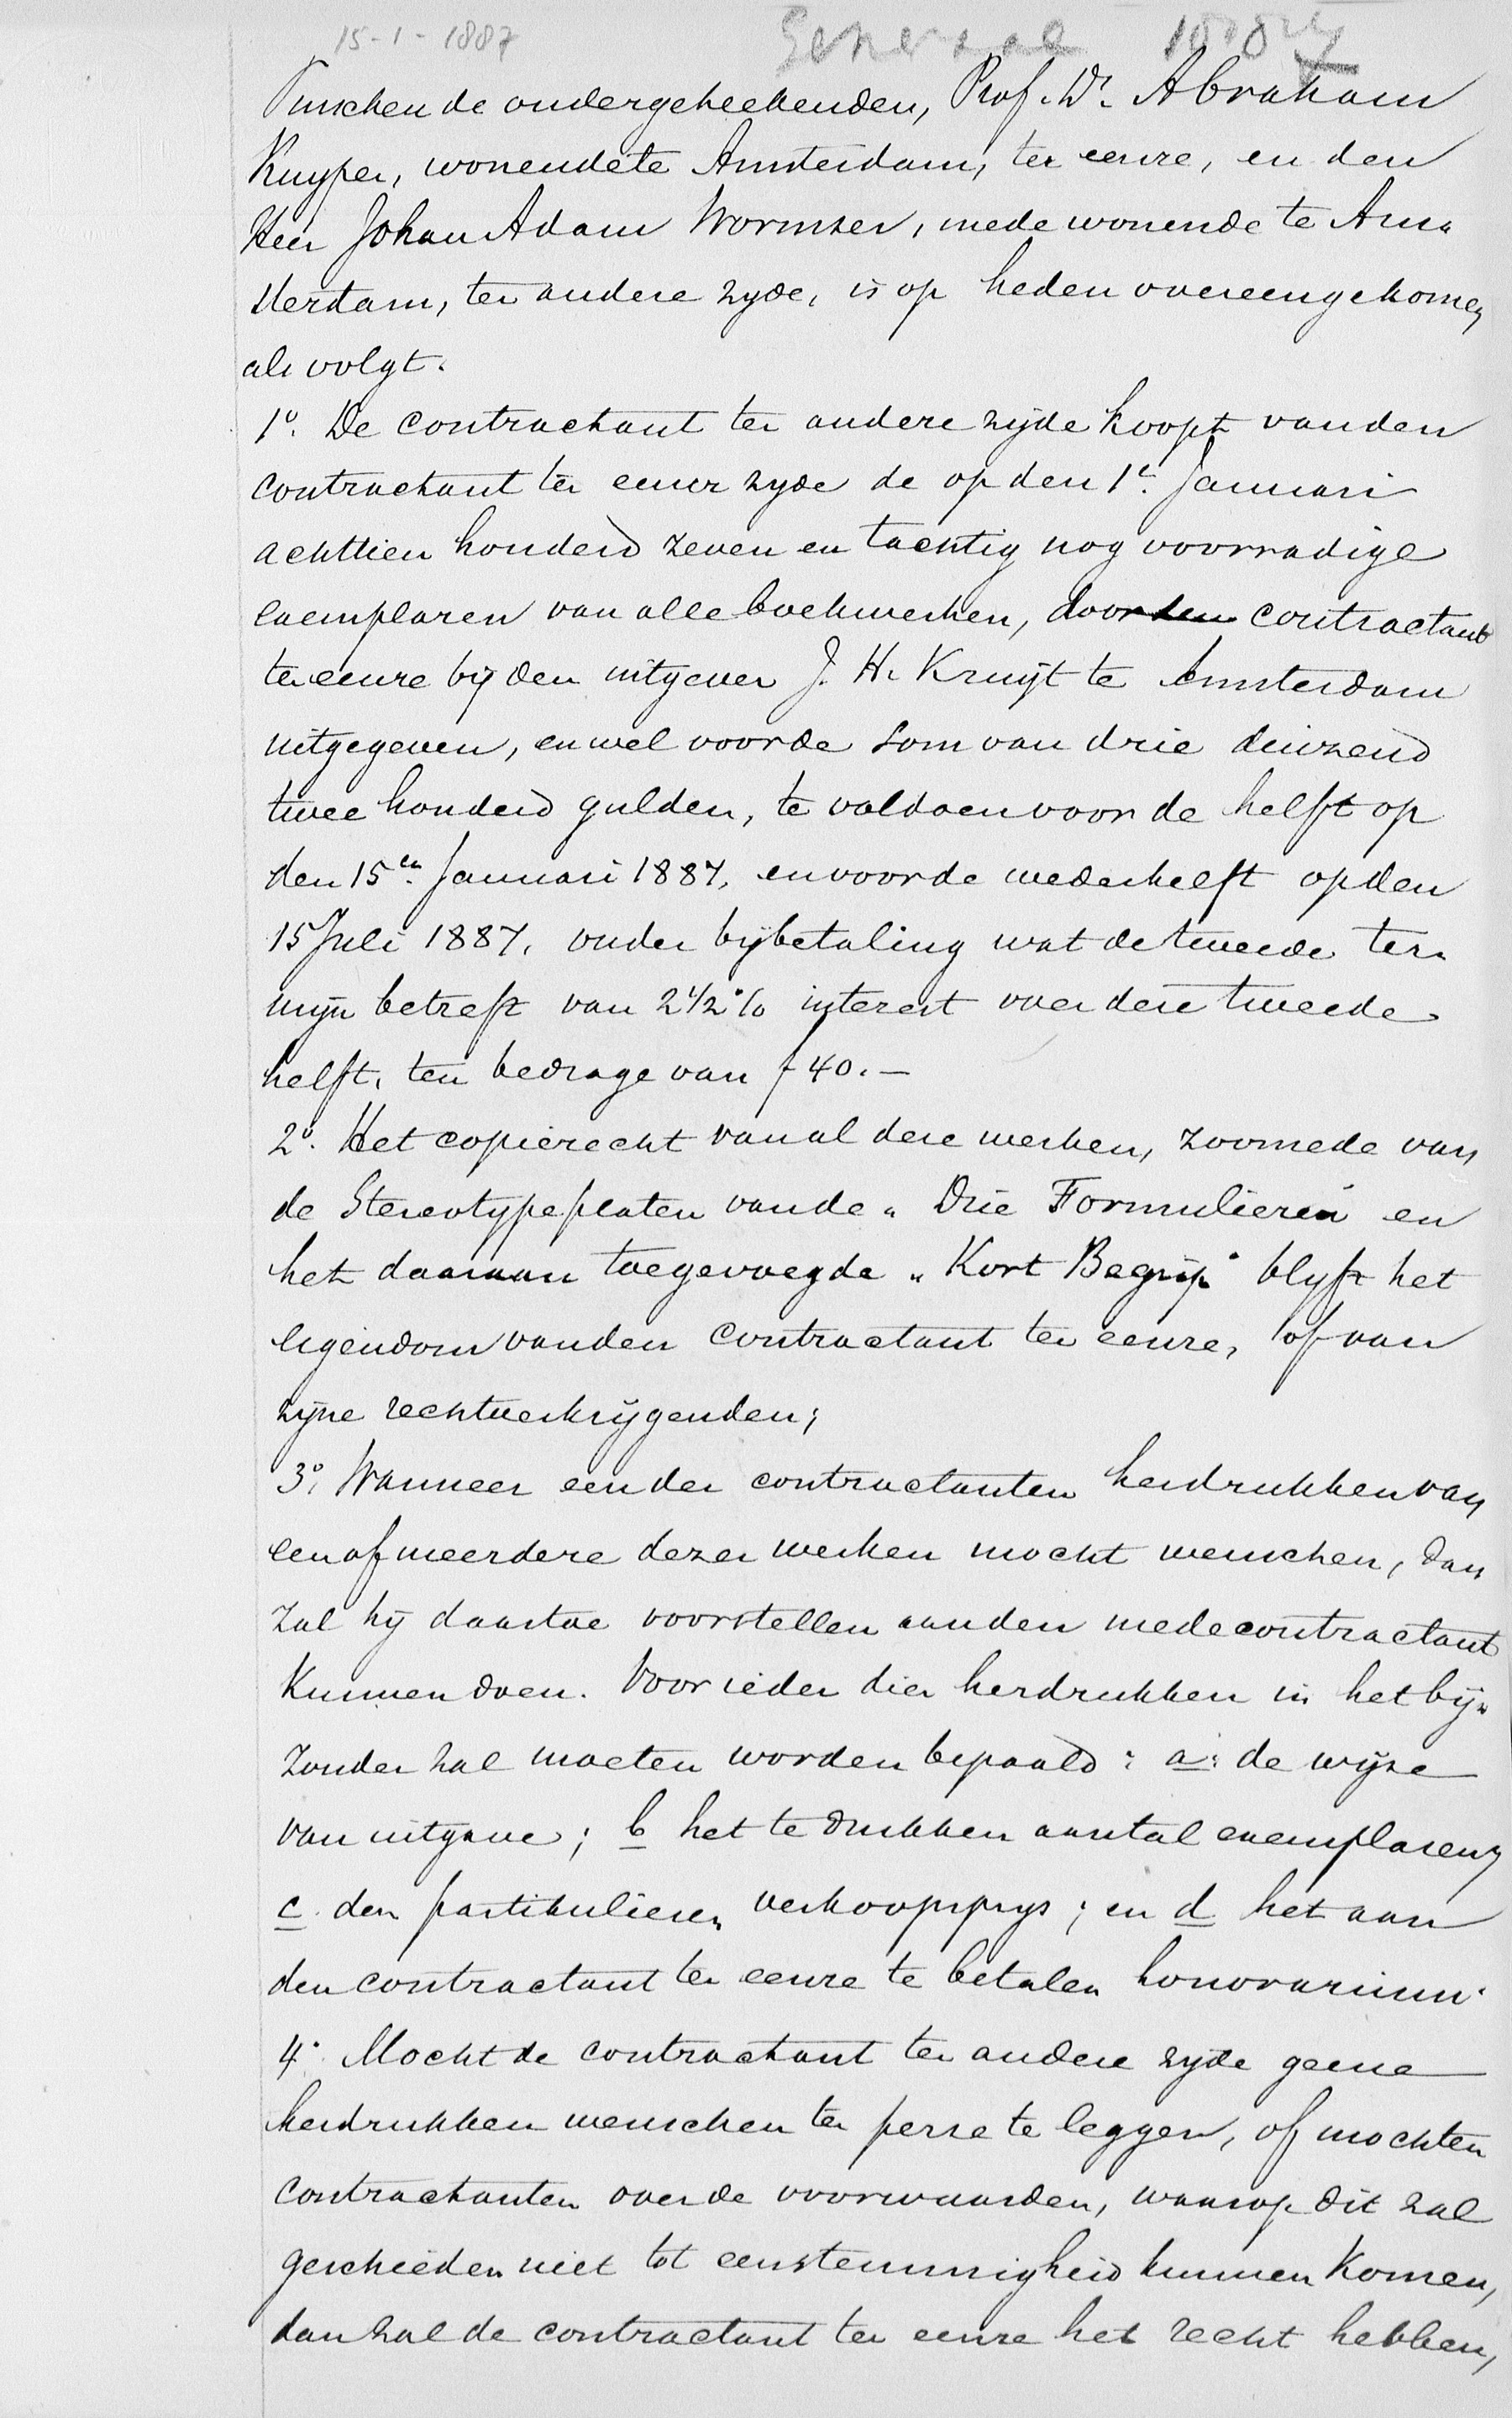 15-1-1887
Tusschen de ondergeteekenden, Prof. Dr. Abraham
Kuyper, wonende te Amsterdam, ter eenre, en den
Heer Johan Adam Wormser, mede wonende te Am„
sterdam, ter andere zyde, is op heden overeengekomen
als volgt.
1o. De contractant ter andere zijde koopt van den
contractant ter eenre zyde de op den 1e. Januari
achttien honderd zeven en tachtig nog voorradige
exemplaren van alle boekwerken, door den contractant
ter eenre bij den uitgever J. H. Kruijt te Amsterdam
uitgegeven, en wel voor de som van drie duizend
twee honderd gulden, te voldoen voor de helft op
den 15en. Januari 1887, en voor de wederhelft op den
15 Juli 1887, onder bijbetaling wat de tweede ter„
mijn betreft van 2 1/2 % interest over deze tweede
helft, ten bedrage van f 40.—
2o. Het copierecht van al deze werken, zoomede van
de Stereotypeplaten van de „Drie Formulieren" en
het daaraan toegevoegde „Kort Begrip" blyft het
eigendom van den contractant ter eenre, of van
zijne rechtverkrijgenden;
3o. Wanneer een der contractanten herdrukken van
een of meerdere dezer werken mocht wenschen, dan
zal hij daartoe voorstellen aan den medecontractant
kunnen doen. Voor ieder dier herdrukken in het bij„
zonder zal moeten worden bepaald: a: de wijze
van uitgave; b het te drukken aantal exemplaren;
c. den partikulieren verkoopsprys; en d het aan
den contractant ter eenre te betalen honorarium.
4o. Mocht de contractant ter andere zyde geene
herdrukken wenschen ter perse te leggen, of mochten
contractanten over de voorwaarden, waarop dit zal
geschieden niet tot eenstemmigheid kunnen komen,
dan zal de contractant ter eenre het recht hebben,